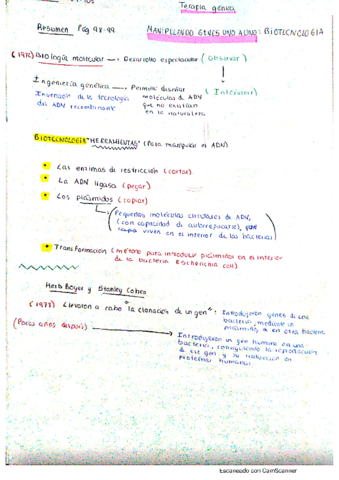 Terapia génica
Resumen Pág 98-99 MANIPULANDO GENES UNO A UNO: BIOTECNOLOGÍA
(1970) Biología molecular → Desarrollo espectacular (Observar)
Ingeniería genética → Permite diseñar (Intervenir)
Invención de la tecnología moléculas de ADN
del ADN recombinante que no existían
en la naturaleza
BIOTECNOLOGÍA "HERRAMIENTAS" (Para manipular el ADN)
Las enzimas de restricción (cortar)
La ADN ligasa (pegar)
Los plásmidos (copiar)
Pequeñas moléculas circulares de ADN,
(con capacidad de autorreplicarse), que
viven en el interior de las bacterias
Transformación (método para introducir plásmidos en el interior
de la bacteria Escherichia coli)
Herb Boyer y Stanley Cohen
(1973) Llevaron a cabo la clonación de un gen: Introdujeron genes de una
bacteria, mediante un
plásmido, a en otra bacteria
(Pocos años después) → Introdujeron un gen humano en una
bacteria, consiguiendo la reproducción
de ese gen y su traducción en
proteínas humanas
Escaneado con CamScanner